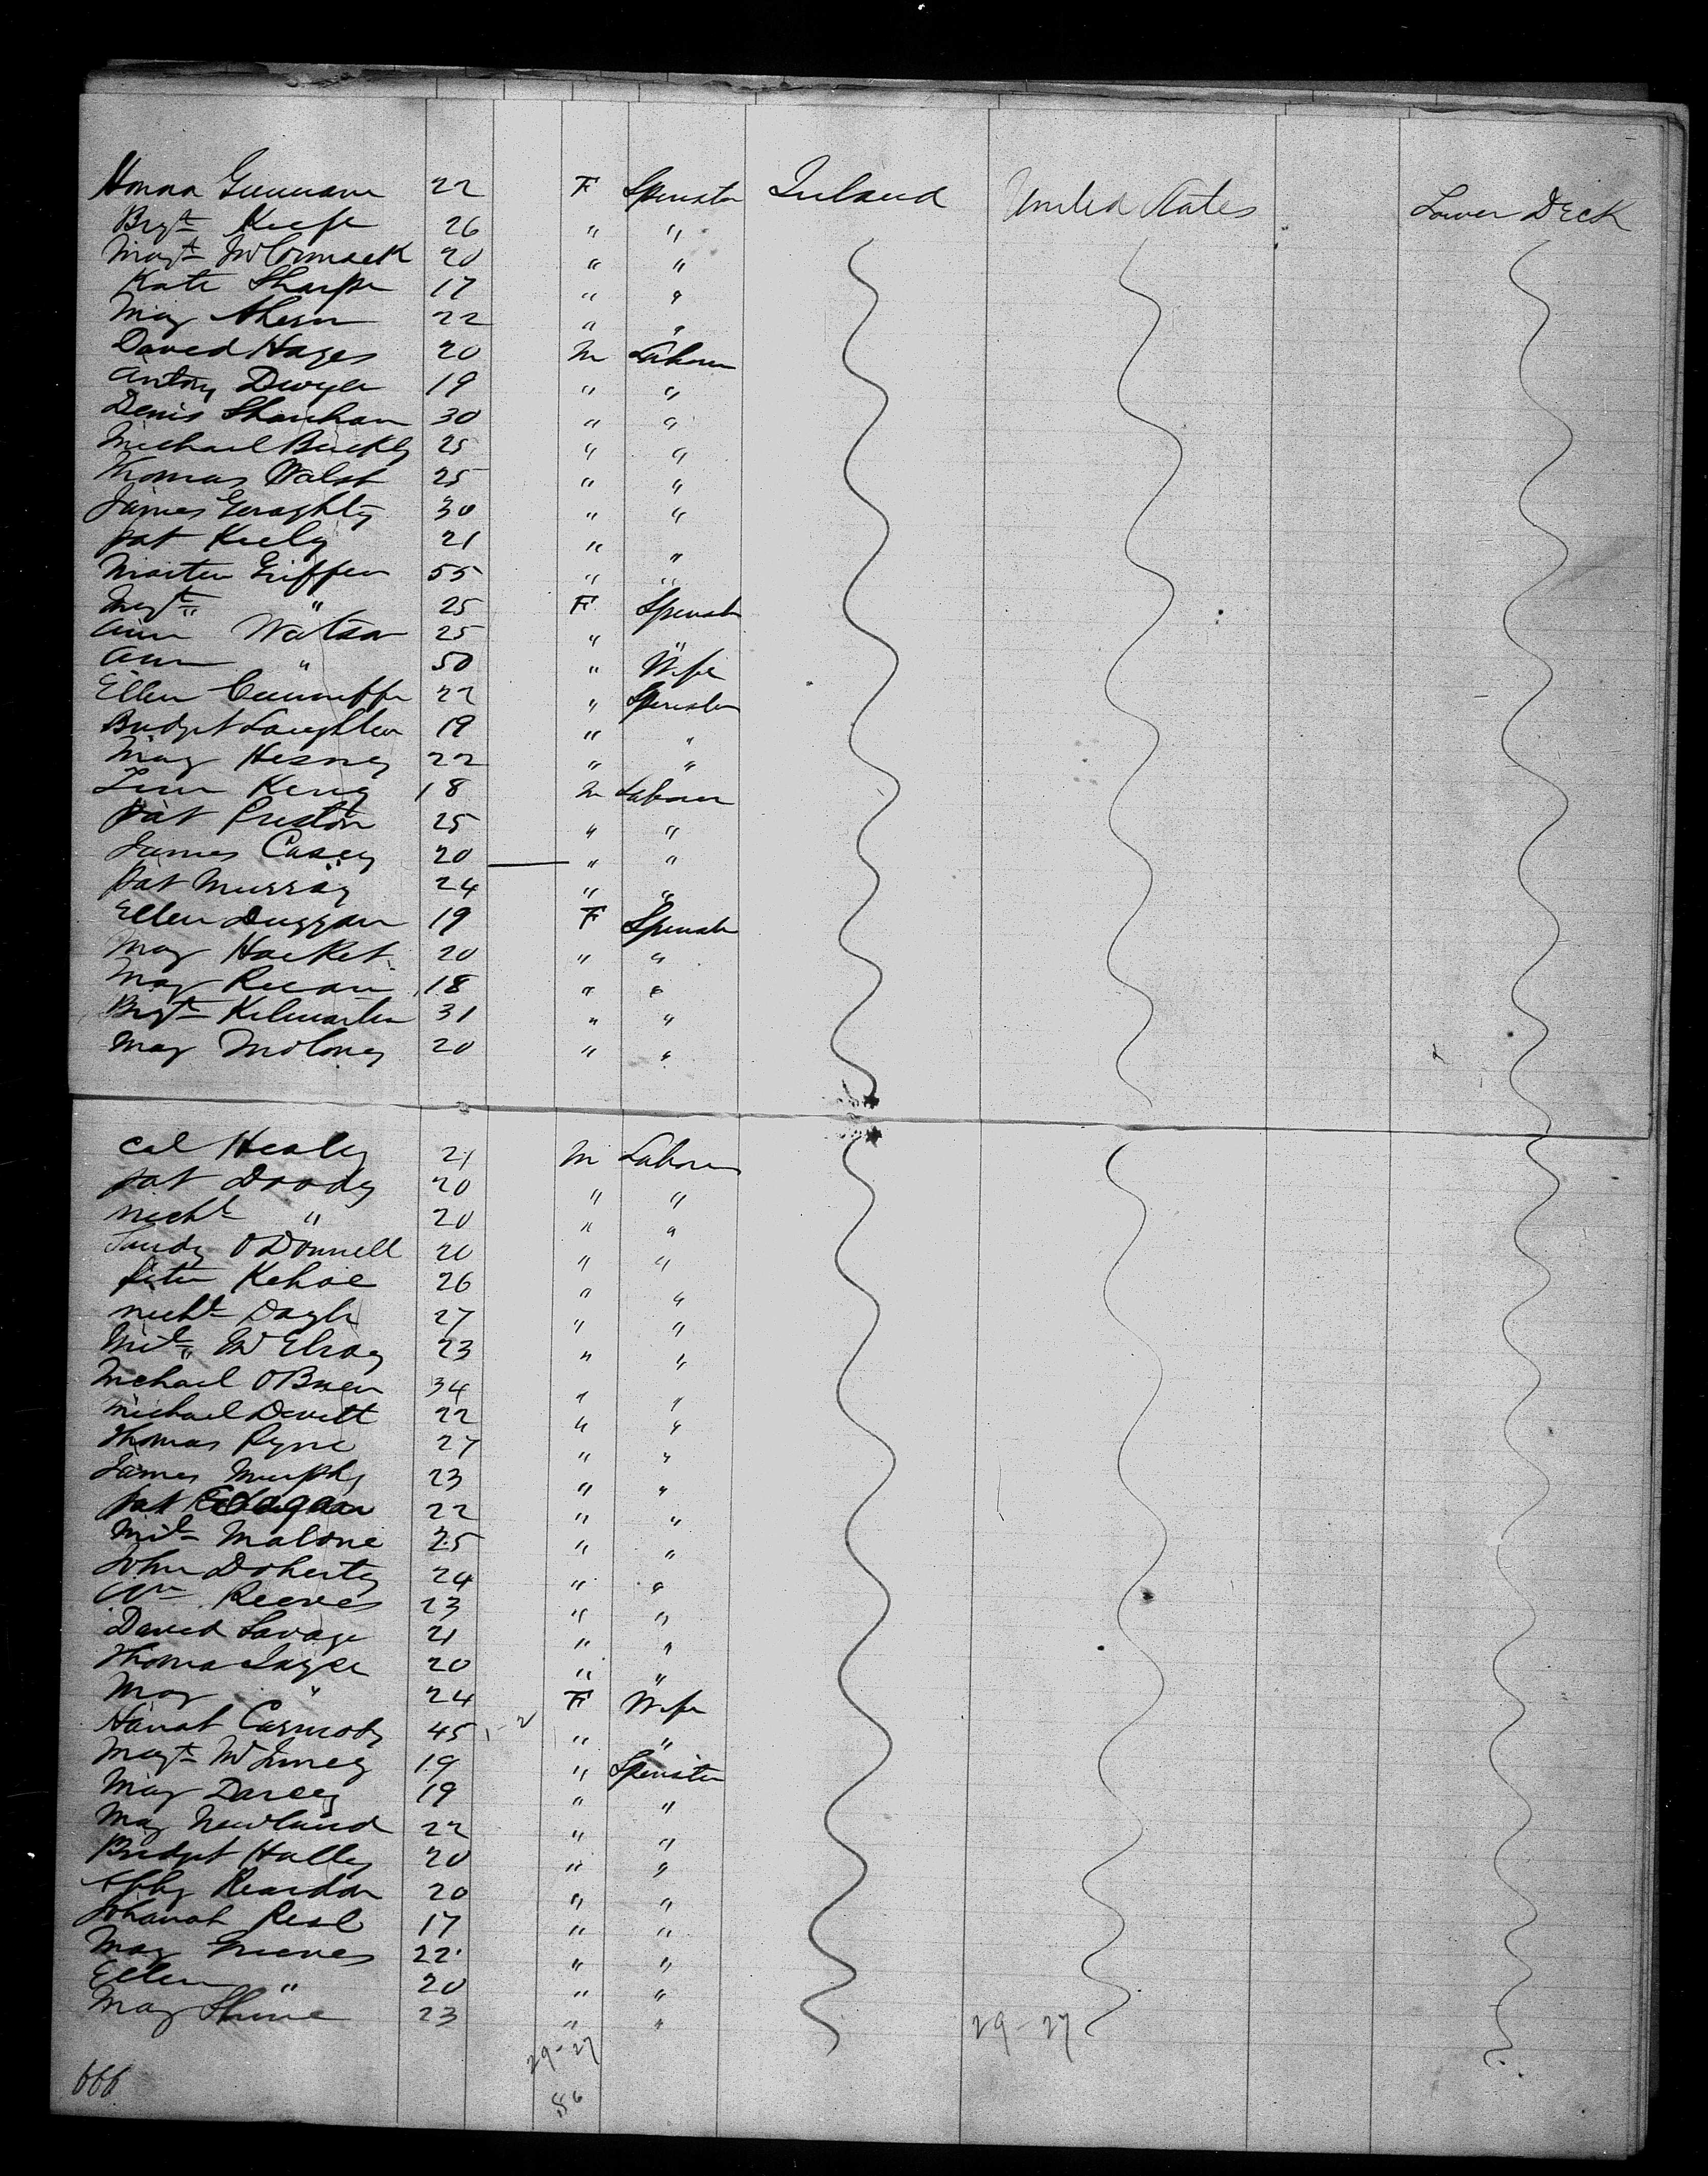 Honna 22 F Spinster Ireland United States Lower Deck
Brgt Keefe 26 " "
Magt McCormack 20 " "
Kate Sharpe 17 " "
May Ahern 22 " "
David Hayes 20 M Laborer
Antony Dwyer 19 " "
Denis Shanahan 30 " "
Michael Buckly 25 " "
Thomas Walsh 25 " "
James Geraghty 30 " "
Pat Keely 21 " "
Martin Griffen 55 " "
Magt " 25 F Spinster
Ann Watson 25 " "
Ann " 50 " Wife
Ellen Cunniffe 22 " Spinster
Bridget Laughlen 19 " "
May Hesney 22 " "
18 M Laborer
Pat Preston 25 " "
James Casey 20 " "
Pat Murray 24 " "
Ellen Duggan 19 F Spinster
May Hacket 20 " "
May 18 " "
Brgt Kilmartin 31 " "
May Moloney 20 " "
Cal Healey 21 M Laborer
Pat Doody 20 " "
Michl " 20 " "
O'Donnell 20 " "
Peter Kehoe 26 " "
Michl Doyle 27 " "
McElroy 23 " "
Michael OBrien 34 " "
Michael Devitt 22 " "
Thomas Ryne 27 " "
James Murphy 23 " "
Pat 22 " "
Malone 25 " "
John Doherty 24 " "
Wm Reeves 23 " "
David Savage 21 " "
Thomas Joyce 20 " "
May " 24 F Wife
Hanah Carmody 45 " "
Magt 19 " Spinster
May Darcey 19 " "
May Newland 22 " "
Bridget Halley 20 " "
Reardon 20 " "
Johanah Real 17 " "
May Greeves 22 " "
Ellen " 20 " "
May Shine 23 " "
29-27 29-27
666 56